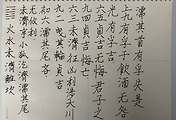 火水未濟離坎
未濟亨小狐汔濟濡其尾
无攸利
初六濡其尾吝
九二曳其輪貞吉
六三未濟征凶利涉大川
九四貞吉悔亡
六五貞吉无悔君子之
光有孚吉
上九有孚于飲酒无咎
濡其首有孚失是